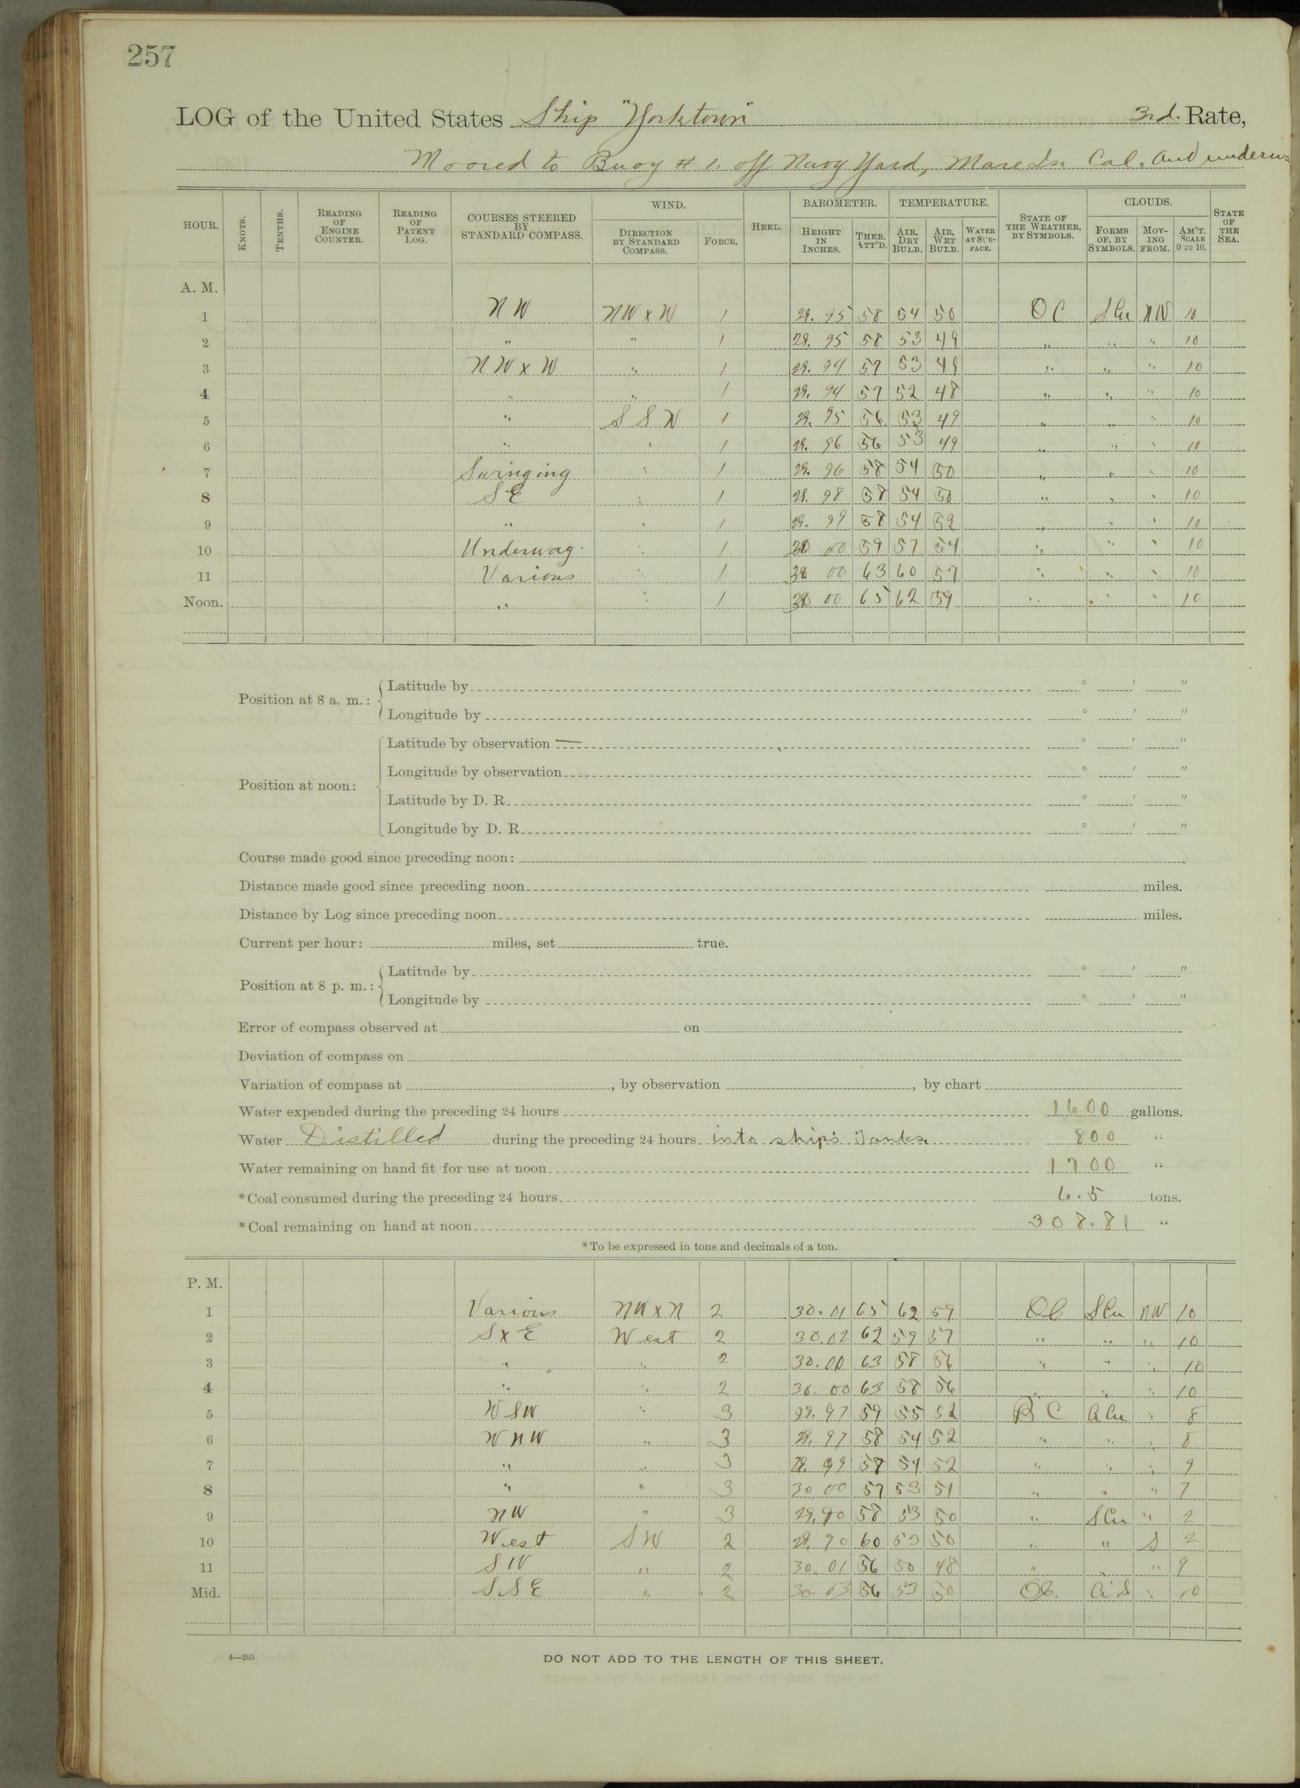 257
LOG of the United States Ship "Yorktown" 3rd. Rate,
Moored to Buoy # 1. off Navy Yard, Mare Is. Cal. and underwa
HOUR. KNOTS. TENTHS. READING OF ENGINE COUNTER. READING OF PATENT LOG. COURSES STEERED BY STANDARD COMPASS. WIND. DIRECTION BY STANDARD COMPASS. FORCE. HEEL. BAROMETER. HEIGHT IN INCHES. THER. ATT'D. TEMPERATURE. AIR, DRY BULB. AIR, WET BULB. WATER AT SURFACE. STATE OF THE WEATHER, BY SYMBOLS. CLOUDS. FORMS OF, BY SYMBOLS. MOVING FROM. AM'T. SCALE 0 TO 10. STATE OF THE SEA.
A. M.
1 NW NW x W 1 29. 95 58 54 50 OC SCu NW 10
2 " " 1 29. 95 58 53 49 " " " 10
3 NW x W " 1 29. 94 57 53 49 " " " 10
4 " " 1 29. 94 57 52 48 " " " 10
5 " SSW 1 29. 95 56 53 49 " " 10
6 " " 1 29. 96 56 53 49 " " " 10
7 Swinging " 1 29. 96 58 54 50 " " " 10
8 SE " 1 29. 98 58 54 50 " " " 10
9 " " 1 29. 99 58 54 52 " " " 10
10 Underway. " 1 30 00 59 57 54 " " " 10
11 Various " 1 30 00 63 60 57 " " " 10
Noon. " " 1 30 00 65 62 59 " " " 10
Position at 8 a. m.: Latitude by ° ' "
Longitude by ° ' "
Position at noon: Latitude by observation ° ' "
Longitude by observation ° ' "
Latitude by D. R. ° ' "
Longitude by D. R. ° ' "
Course made good since preceding noon:
Distance made good since preceding noon miles.
Distance by Log since preceding noon miles.
Current per hour: miles, set true.
Position at 8 p. m.: Latitude by ° ' "
Longitude by ° ' "
Error of compass observed at on
Deviation of compass on
Variation of compass at , by observation , by chart
Water expended during the preceding 24 hours 1600 gallons.
Water Distilled during the preceding 24 hours into ship's Tanks. 800 "
Water remaining on hand fit for use at noon 1700 "
*Coal consumed during the preceding 24 hours 6.5 tons.
*Coal remaining on hand at noon 308.81 "
*To be expressed in tons and decimals of a ton.
P. M.
1 Various NW x N 2 30.01 65 62 59 OC SCu NW 10
2 S x E West 2 30.02 62 59 57 " " " 10
3 " " 2 30.00 63 58 56 " " " 10
4 " " 2 30.00 63 58 56 " " " 10
5 WSW " 3 29.97 59 55 52 BC ACu " 8
6 WNW " 3 29.97 58 54 52 " " " 8
7 " " 3 29.99 58 54 52 " " " 9
8 " " 3 30.00 57 53 51 " " " 7
9 NW " 3 29.90 58 53 50 " SCu " 2
10 West SW 2 29.90 60 53 50 " " S 2
11 SW " 2 30.01 56 50 48 " " " 9
Mid. SSE " 2 30.03 56 53 50 OC. 10
4—265
DO NOT ADD TO THE LENGTH OF THIS SHEET.